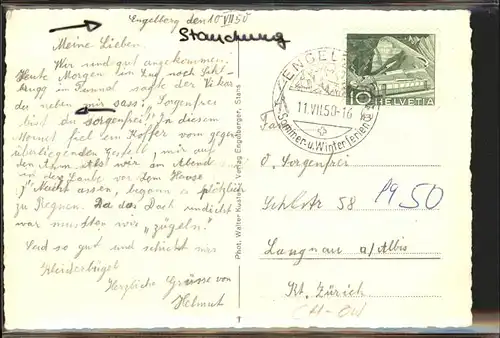 Engelberg den 10 VII 50
Stauchung
Meine Lieben.
Wir sind gut angekommen.
Heute Morgen im Zug nach Sihl-
brugg im Tunnel sagte der Vikar
der neben mir sass: „Sorgenfrei
bist du sorgenfrei?" In diesem
Moment fiel ein Koffer vom gegen-
überliegenden Gestell, mir auf
den Arm. Als wir am Abend
in der Laube vor dem Hause
z'Nacht assen, begann es plötzlich
zu Regnen. Da das Dach undicht
war mussten wir „zügeln".
Seid so gut und schickt mir
Kleiderbügel
Herzliche Grüsse von
Helmut
Phot. Walter Verlag Engelberger, Stans
T
ENGELBERG
11.VII.50-16
Sommer-u.Winterferien
10 HELVETIA
Fam
O. Sorgenfrei
Sihlstr 58
1950
Langnau a/Albis
Kt. Zürich
CH-OW